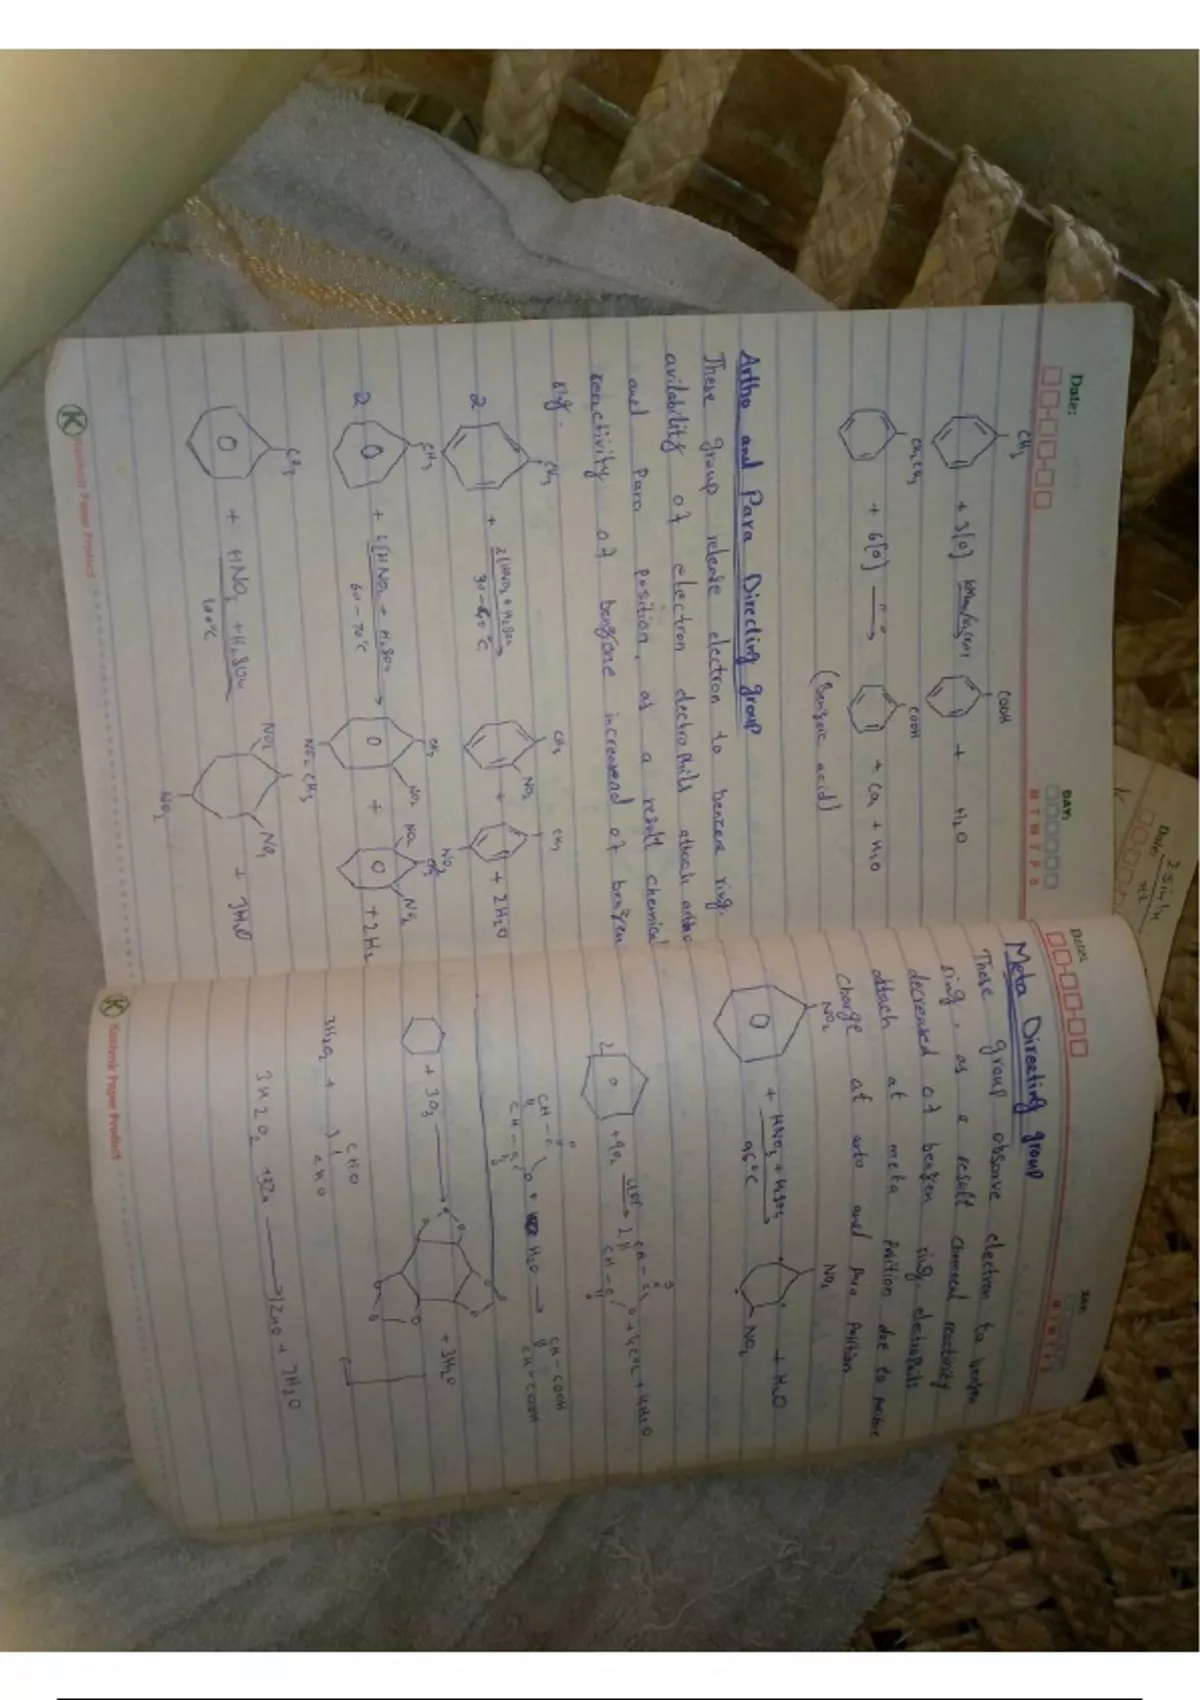 Date:
DAY
M T W T F S
CH3
COOH
+ 3[O]
+ H2O
CH2CH3
COOH
+ 6[O]
+ H2O
(Benzoic acid)
Artho and Para Directing group
These group release electron to benzene ring.
avilability of electron electrophils attack artho
and Para position, as a result chemical
reactivity of benzene increasead of benzen
ring.
CH3
CH3
CH3
2
+
30-40°C
NO2
+
+ 2H2O
NO2
CH3
CH3
2
+
60-70°C
NO2
+
NO2
NO2
CH3
CH3
+ HNO3 + H2SO4
100°C
NO2
NO2
NO2
+ 3H2O
Kashmir Paper Product
Date:
DAY
Meta Directing group
These group obsorve electron to benzen
ring, as a result chemecal reactivity
decreased of benzen ring, electrophils
attach at meta position due to
charge at arto and para position
NO2
+ HNO3 + H2SO4
95°C
NO2
NO2
+ H2O
2
+ 9O2
2
CH - C
CH - C
O + 4CO2 + 4H2O
CH - C
CH - C
O + H2O
CH - COOH
CH - COOH
+ 3O3
+ 3H2O
3H2O2 +
CHO
CHO
3H2O2 + 3Zn
ZnO + 7H2O
Kashmir Paper Product